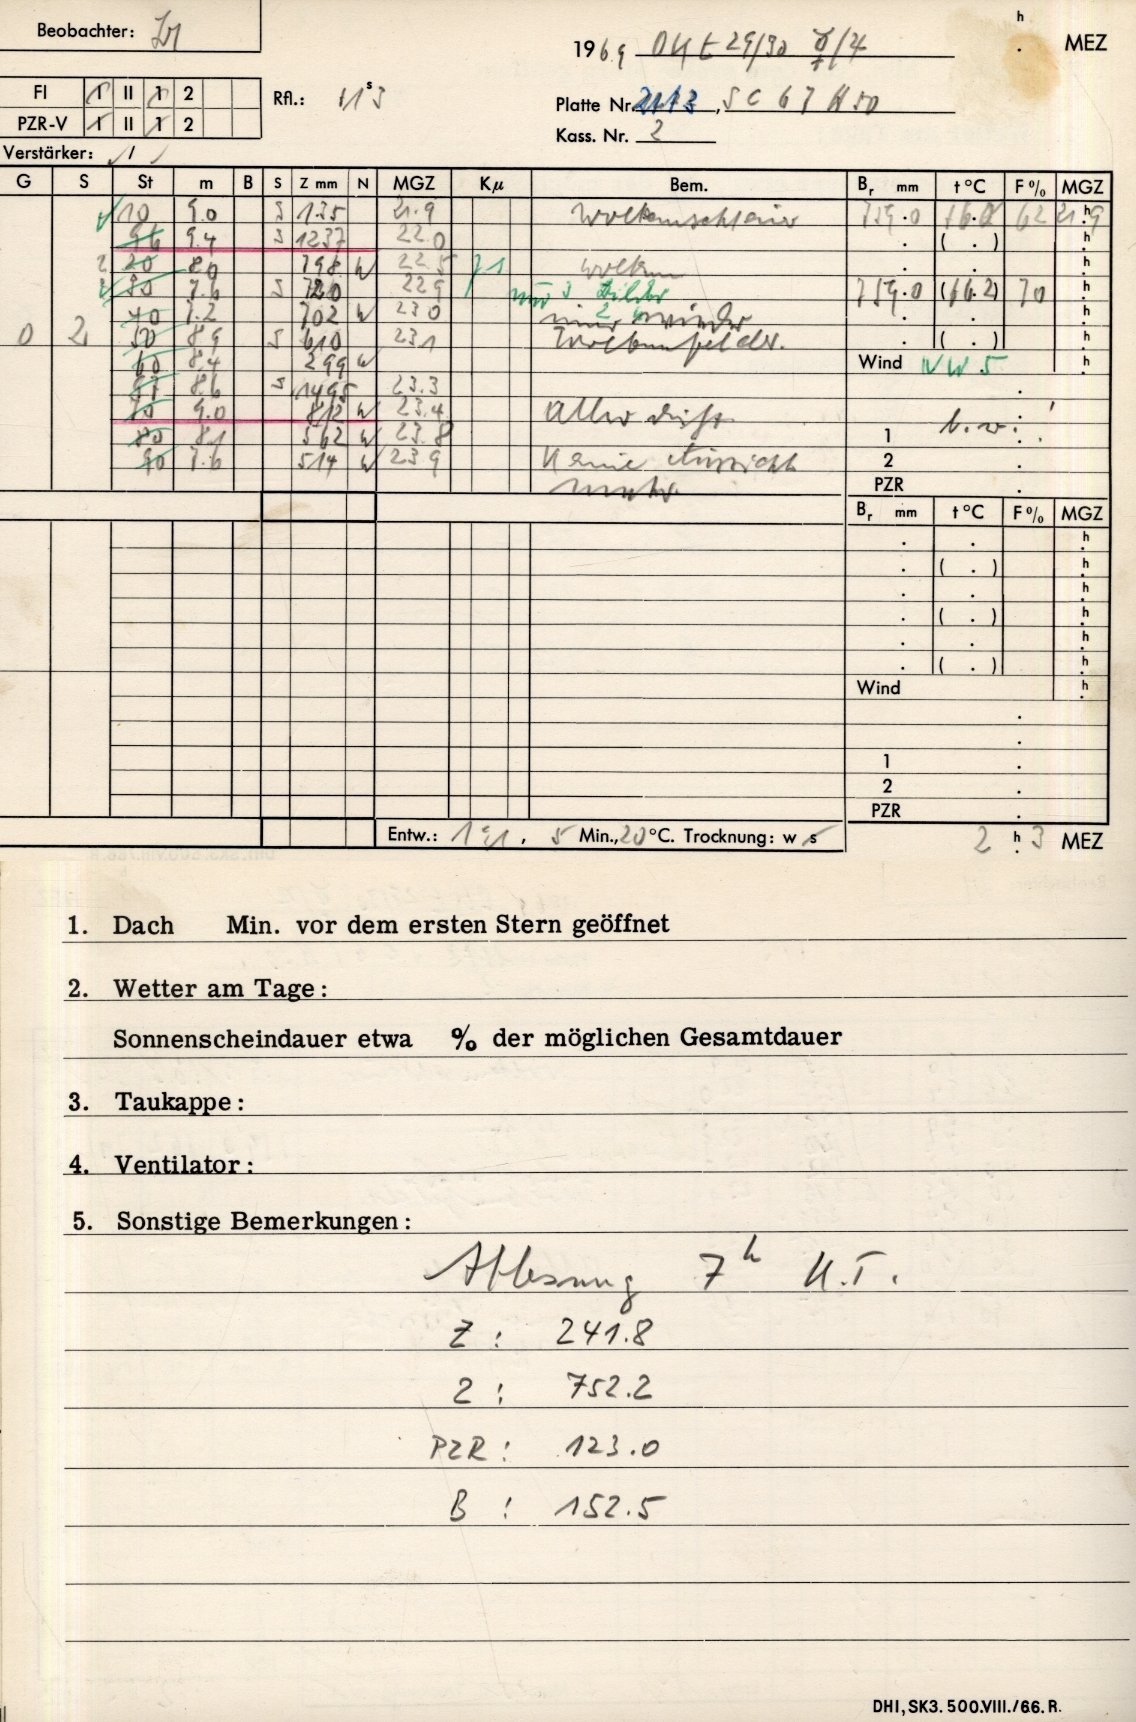 h
Beobachter:
1969 Okt 29/30 ☿/♃ . MEZ
FI I II 1 2 Rfl.: 11ˢ3
Platte Nr. 2173, SC 67 H 50
PZR-V I II 1 2
Kass. Nr. 2
Verstärker: /
G S St m B S Z mm N MGZ Kμ Bem. Br mm t °C F % MGZ
10 9.0 S 135 21.9 Wolkenschleier 759.0 16.2 62 21.9 h
96 9.4 S 1237 22.0 . ( . ) h
2 20 8.0 798 W 22 5 71 Wolken . . h
30 7.6 S 720 22 9 nur 3 Bilder 759.0 (16.2) 70 h
40 7.2 702 W 23 0 immer wieder . . h
0 2 50 8.9 S 610 23 1 Wolkenfelder. . ( . ) h
60 8.4 299 W Wind NW 5 h
8.6 S 1495 23.3
70 9.0 812 W 23.4 Alles dicht
80 8.1 562 W 23.8 1 b.w.
90 7.6 514 W 23 9 Keine Aussicht 2 .
mehr. PZR .
Br mm t °C F % MGZ
. . h
. ( . ) h
. . h
. ( . ) h
. . h
. ( . ) h
Wind h
.
.
1 .
2 .
PZR .
Entw.: 1+1, 5 Min., 20 °C. Trocknung: w s 2 h 3 MEZ
1. Dach Min. vor dem ersten Stern geöffnet
2. Wetter am Tage:
Sonnenscheindauer etwa % der möglichen Gesamtdauer
3. Taukappe:
4. Ventilator:
5. Sonstige Bemerkungen:
Ablesung 7h U.T.
Z : 241.8
2 : 752.2
PZR : 123.0
B : 152.5
DHI, SK3. 500.VIII./66. R.